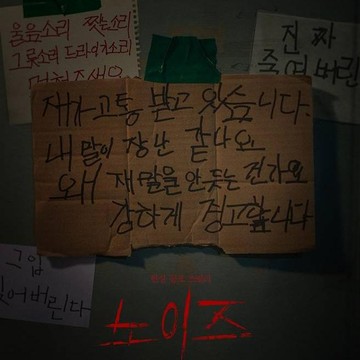 울음소리 짖는소리
그릇소리 드라이기소리
멈춰주세요
진짜
죽여버린
제가 고통 받고 있습니다.
내 말이 장난 같나요
왜 제 말을 안 듣는 건가요
강하게 경고합니다
그입
찢어버린다
노이즈